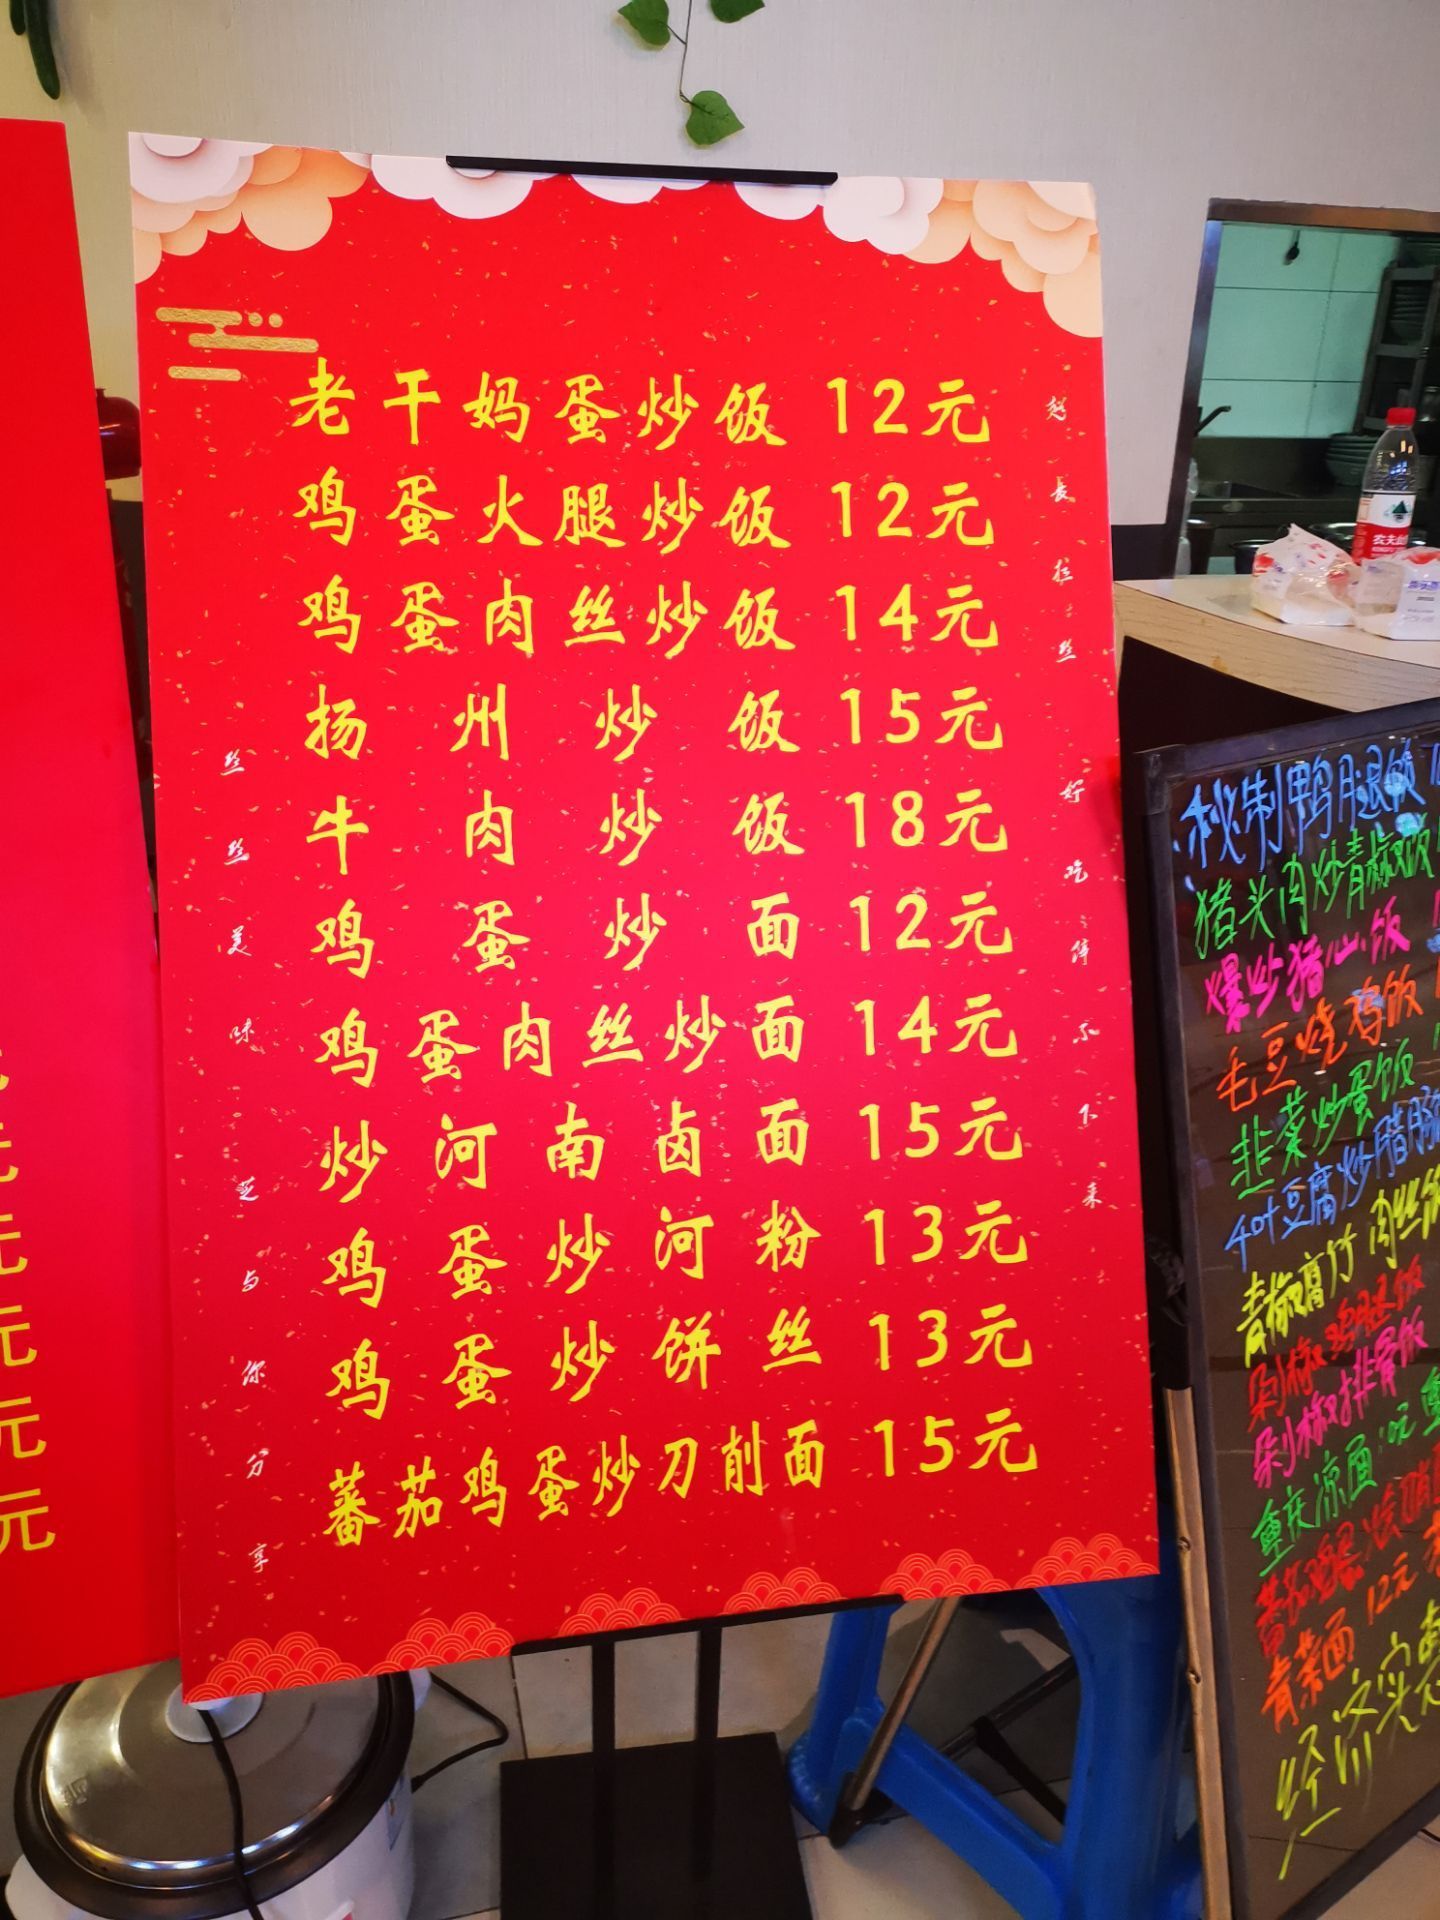 老干妈蛋炒饭 12元
鸡蛋火腿炒饭 12元
鸡蛋肉丝炒饭 14元
扬州炒饭 15元
牛肉炒饭 18元
鸡蛋炒面 12元
鸡蛋肉丝炒面 14元
炒河南卤面 15元
鸡蛋炒河粉 13元
鸡蛋炒饼丝 13元
蕃茄鸡蛋炒刀削面 15元
越长拉丝好吃停不下来
丝丝美味芝与你分享
元
元
元
元
元
农夫山
秘制鸭腿饭
猪头肉炒青椒饭
爆炒猪心饭
毛豆烧鸡饭
韭菜炒蛋饭
豆腐炒腊肠
青椒腐竹肉丝饭
剁椒鸡腿饭
剁椒排骨饭
重庆凉面
青菜面 12元
经济实惠